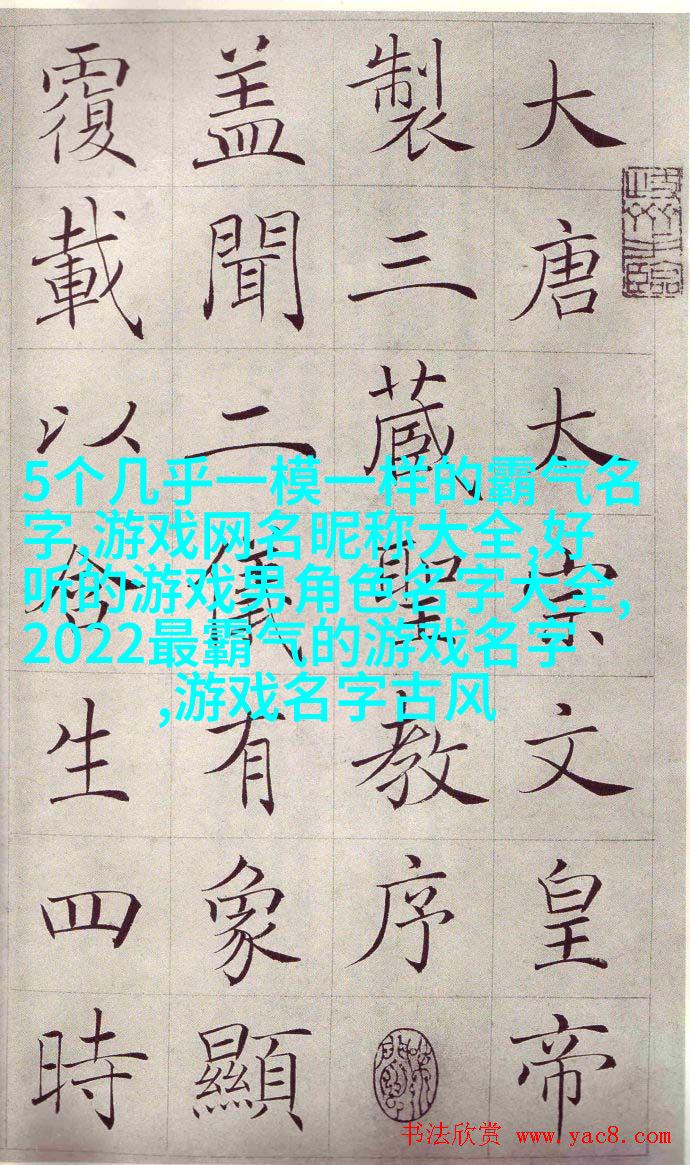 大唐太宗文皇帝
製三藏聖教序
盖聞二儀有象顯
覆載以含生四時
5个几乎一模一样的霸气名
字,游戏网名昵称大全,好
听的游戏男角色名字大全,
2022最霸气的游戏名字
,游戏名字古风
书法欣赏 www.yac8.com